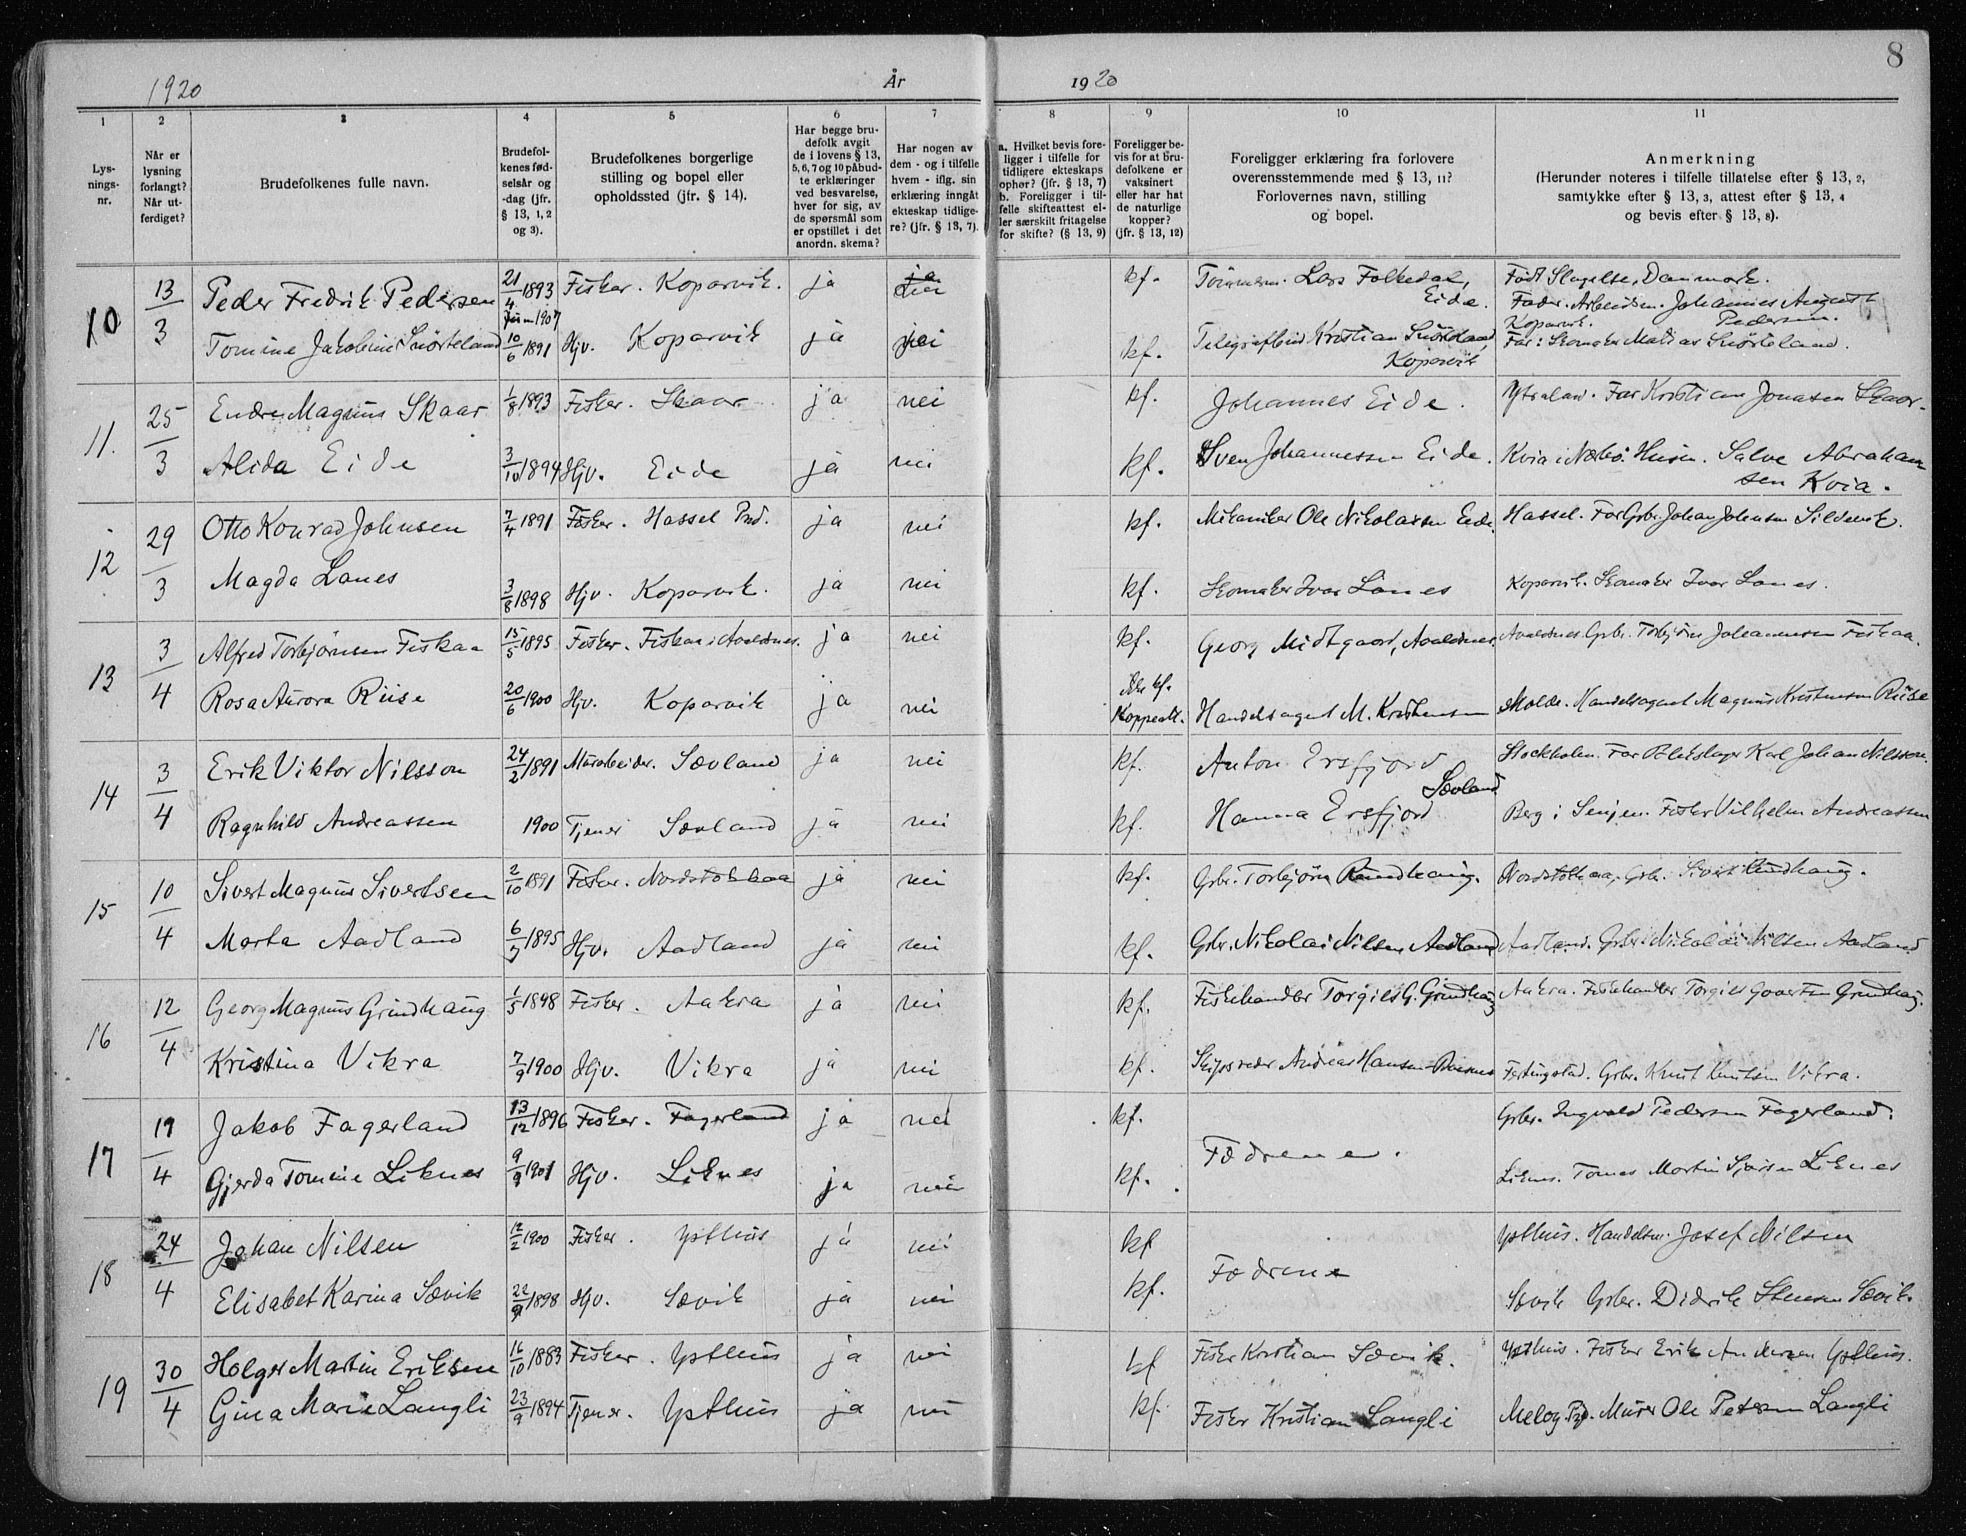 8
1920 År 1920
1 2 3 4 5 6 7 8 9 10 11
Lys-
nings-
nr.
Når er
lysning
forlangt?
Når ut-
ferdiget?
Brudefolkenes fulle navn.
Brudefol-
kenes fød-
selsår og
-dag (jfr.
§ 13, 1, 2
og 3).
Brudefolkenes borgerlige
stilling og bopel eller
opholdssted (jfr. § 14).
Har begge bru-
defolk avgit
de i lovens § 13,
5, 6, 7 og 10 påbud-
te erklæringer
ved besvarelse,
hver for sig, av
de spørsmål som
er opstillet i det
anordn. skema?
Har nogen av
dem - og i tilfelle
hvem - iflg. sin
erklæring inngåt
ekteskap tidlige-
re? (jfr. § 13, 7).
a. Hvilket bevis fore-
ligger i tilfelle for
tidligere ekteskaps
ophør? (jfr. § 13, 7)
b. Foreligger i til-
felle skifteattest el-
ler særskilt fritagelse
for skifte? (§ 13, 9)
Foreligger be-
vis for at bru-
defolkene er
vaksinert
eller har hat
de naturlige
kopper?
(jfr. § 13, 12)
Foreligger erklæring fra forlovere
overensstemmende med § 13, 11?
Forlovernes navn, stilling
og bopel.
Anmerkning
(Herunder noteres i tilfelle tillatelse efter § 13, 2,
samtykke efter § 13, 3, attest efter § 13, 4
og bevis efter § 13, 8).
10 13/3 Peder Fredrik Pedersen 21/4 1893 Fisker. Koparvik. ja kf. Tømmerm. Lars Folkedal, Eide. Født Slagelse, Danmark.
Fader. Arbeidsm. Johannes August Pedersen.
Tomine Jakobine Snørteland 10/6 1891 Hjv. Koparvik ja nei kf. Kristian Snørteland, Koparvik Koparvik. Far: Skomaker Matias Snørteland.
11. 25/3 Endre Magnus Skaar 1/8 1893 Fisker. Skaar. ja nei kf. Johannes Eide. Ytraland. Far Kristian Jonasen Skaar.
Alida Eide 3/10 1894 Hjv. Eide ja nei kf. Sven Johannessen Eide. Kvia i Nærbø. Husm. Salve Abraham-
sen Kvia.
12 29/3 Otto Konrad Johnsen 7/4 1891 Fisker. Hassel Prd. ja nei kf. Mekaniker Ole Nikolaisen Eide. Hassel. Far Gbr. Johan Johnsen
Magda Lanes 3/8 1898 Hjv. Koparvik. ja nei kf. Skomaker Ivar Lanes Koparvik. Skomaker Ivar Lanes.
13 3/4 Alfred Torbjørnsen Fiskaa 15/5 1895 Fisker. Fiskaa i Avaldsnes. ja nei kf. Georg Midtgaard, Avaldsnes. Avaldsnes Gbr. Torbjørn Johannesen Fiskaa.
Rosa Aurora Riise 20/6 1900 Hjv. Koparvik ja nei Ikke kf.
Koppeatt. Handelsagent M. Kristensen Molde. Handelsagent Magnus Kristensen Riise
14 3/4 Erik Viktor Nilsson 24/2 1891 Murarbeider. Sævland ja nei kf. Anton Ersfjord Sævland Stockholm. Far Blikslager Karl Johan Nilsson.
Ragnhild Andreassen 1900 Tjener Sævland ja nei kf. Hanna Ersfjord Berg i Senjen. Fisker Vilhelm Andreassen
15 10/4 Sivert Magnus Sivertsen 2/10 1891 Fisker. Nordstokkaa ja nei kf. Gbr. Torbjørn Rundhaug. Nordstokkaa, Gbr. Sivert Rundhaug.
Marta Aadland 6/7 1895 Hjv. Aadland ja nei kf. Gbr. Nikolai Nilsen Aadland Aadland. Gbr. Nikolai Nilsen Aadland
16 12/4 Georg Magnus Grindhaug 1/5 1898 Fisker. Aakra ja nei kf. Fiskehandler Torgils G. Grindhaug Aakra. Fiskehandler Torgils Govertsen Grindhaug.
Kristina Vikra 7/9 1900 Hjv. Vikra ja nei kf. Skipsreder Andreas Hansen Ferkingstad. Gbr. Knut Knutsen Vikra.
17 19/4 Jakob Fagerland 13/12 1896 Fisker. Fagerland ja nei kf. Fædrene. Gbr. Ingvald Pedersen Fagerland.
Gjerda Tomine Liknes 9/9 1901 Hjv. Liknes ja nei kf. Liknes. Tomas Martin Liknes
18 24/4 Johan Nilsen 12/2 1900 Fisker. Ysthus ja nei kf Fædrene Ysthus. Handelsm. Josef Nilsen
Elisabet Karina Sævik 22/9 1898 Hjv. Sævik ja nei kf. Sævik Gbr. Didrik Stensen Sævik.
19 30/4 Holger Martin Eriksen 16/10 1883 Fisker. Ysthus ja nei kf Fisker Kristian Sævik. Ysthus. Fisker Erik Andersen Ysthus.
Gina Marie Langli 23/9 1894 Tjener. Ysthus ja nei kf. Fisker Kristian Langli Meløy Prd. Murer Ole Petersen Langli